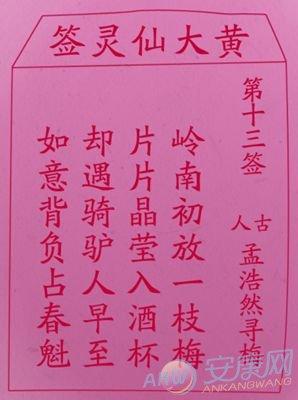 黄大仙灵签
第十三签
古人
孟浩然寻梅
岭南初放一枝梅
片片晶莹入酒杯
却遇骑驴人早至
如意背负占春魁
安康网
ANKANGWANG